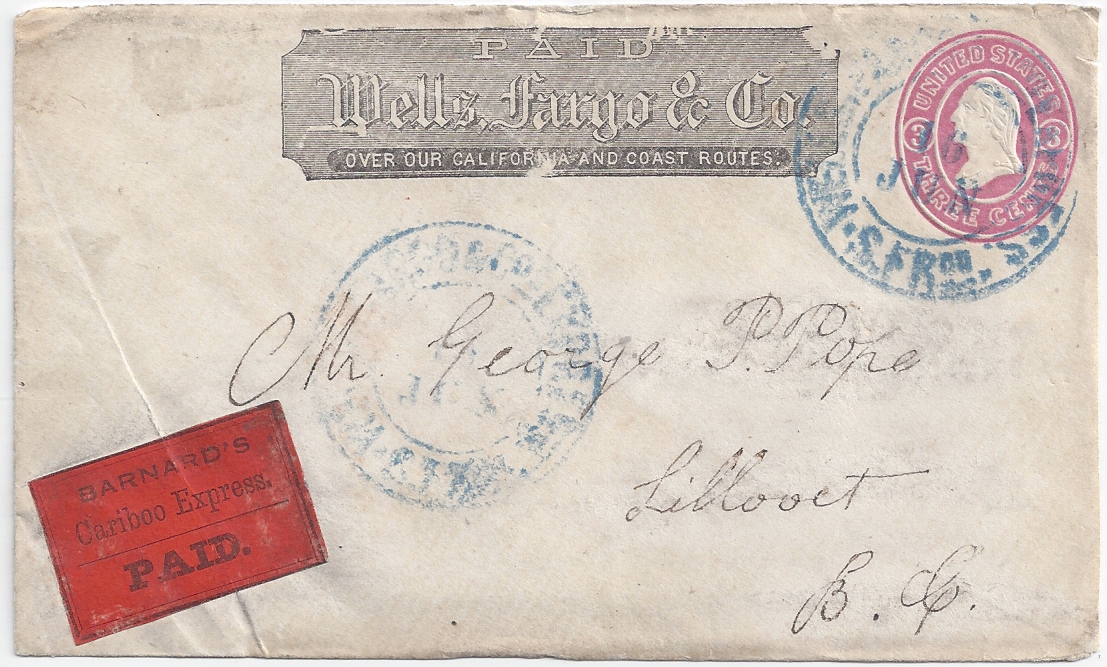 PAID
Wells, Fargo & Co.
OVER OUR CALIFORNIA AND COAST ROUTES.
UNITED STATES
3 3
THREE CENTS
16
S. FRAN.
Mr. George P. Pope
Lillooet
B. C.
BARNARD'S
Cariboo Express.
PAID.